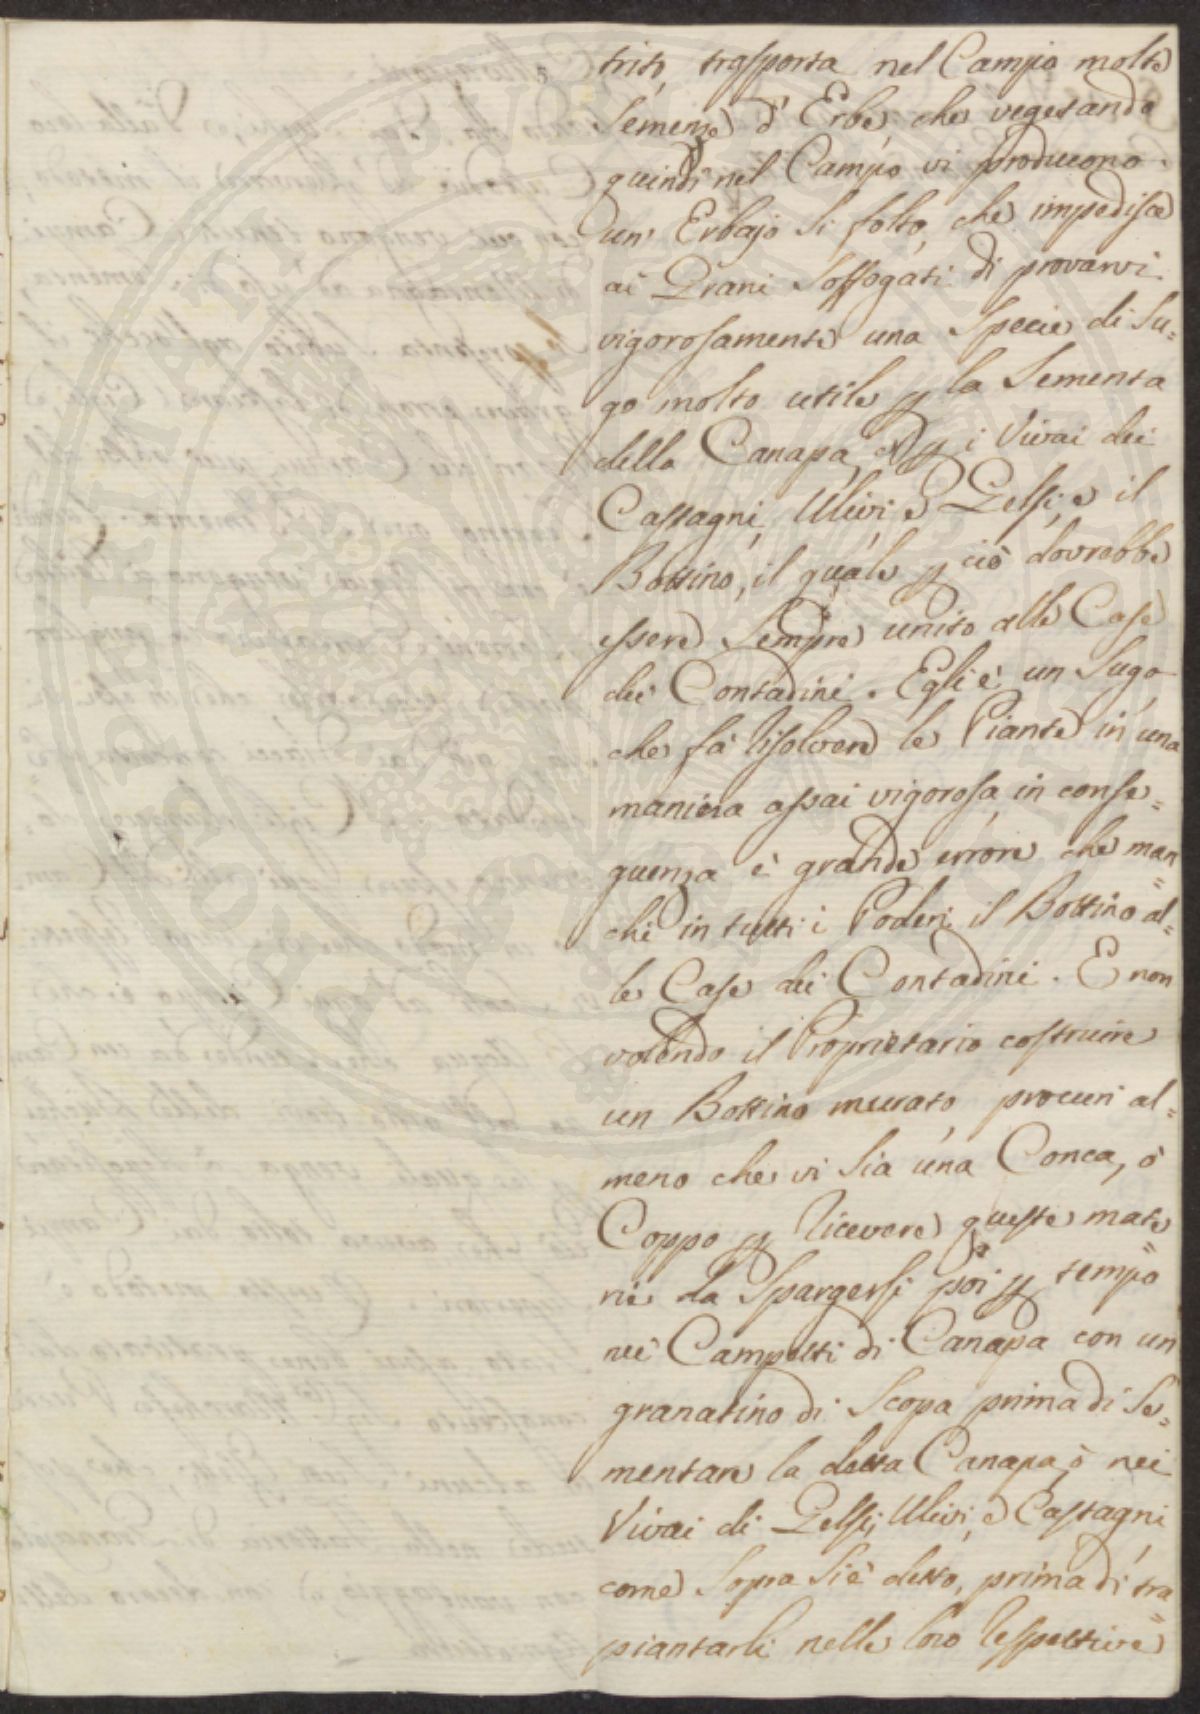 trito, trasporta nel Campo molte
Semenze d'Erbe, che vegetando
quindi nel Campo vi producono
un' Erbajo si folto, che impedisce
ai Grani soffogati di provarvi
vigorosamente una Specie di Su=
go molto utile p la Sementa
della Canapa, e p i Vivai dei
Castagni, Ulivi e Gelsi, e il
Bottino, il quale p ciò dovrebbe
essere Sempre unito alle Case
dei Contadini. Egli è un Sugo
che fà risolvere le Piante in una
maniera assai vigorosa, in conse=
guenza è grande errore che man=
chi in tutti i Poderi il Bottino al=
le Case dei Contadini. E non
volendo il Proprietario costruire
un Bottino murato, procuri al=
meno che vi sia una Conca, ò
Coppo p ricevere queste mate=
rie da Spargersi poi p tempo
nei Campetti di Canapa con un
granatino di Scopa prima di Se=
mentare la detta Canapa, ò nei
Vivai di Gelsi, Ulivi, e Castagni,
come Sopra si è detto, prima di tra=
piantarli nelle loro respettive